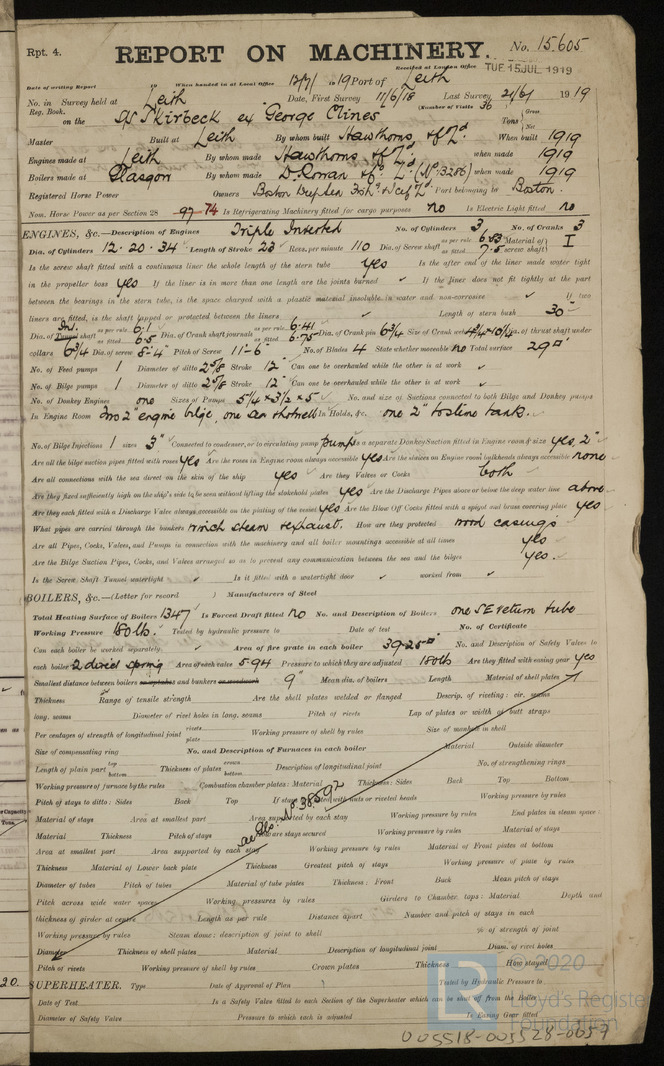 Rpt. 4.
REPORT ON MACHINERY.
No. 15.605
Received at London Office TUE 15 JUL 1919
Date of writing Report When handed in at Local Office 12/7/1919 Port of Leith
No. in Survey held at Leith Date, First Survey 11/6/18 Last Survey 21/6/ 1919
Reg. Book. (Number of Visits 36
on the SS Skirbeck ex George Clines Tons Gross Net
Master Built at Leith By whom built Hawthorns & Co Ld. When built 1919
Engines made at Leith By whom made Hawthorns & Co Ld. when made 1919
Boilers made at Glasgow By whom made D. Rowan & Co. Ld. (No 3286) when made 1919
Registered Horse Power Owners Boston Deep Sea Fish & Ice Co Ld Port belonging to Boston.
Nom. Horse Power as per Section 28 97 74 Is Refrigerating Machinery fitted for cargo purposes no Is Electric Light fitted no
ENGINES, &c.—Description of Engines Triple Inverted No. of Cylinders 3 No. of Cranks 3
Dia. of Cylinders 12. 20. 34 Length of Stroke 23 Revs. per minute 110 Dia. of Screw shaft as per rule 6.83 as fitted 7.5 Material of screw shaft I
Is the screw shaft fitted with a continuous liner the whole length of the stern tube yes Is the after end of the liner made water tight
in the propeller boss yes If the liner is in more than one length are the joints burned If the liner does not fit tightly at the part
between the bearings in the stern tube, is the space charged with a plastic material insoluble in water and non-corrosive If two
liners are fitted, is the shaft lapped or protected between the liners Length of stern bush 30"
Dia. of Tunnel shaft as per rule 6.1 as fitted 6.5 Dia. of Crank shaft journals as per rule 6.41 as fitted 6.75 Dia. of Crank pin 6 3/4 Size of Crank webs Dia. of thrust shaft under
collars 6 3/4 Dia. of screw 8'-4" Pitch of Screw 11'-6" No. of Blades 4 State whether moveable no Total surface 29
No. of Feed pumps 1 Diameter of ditto 2 5/8 Stroke 12 Can one be overhauled while the other is at work
No. of Bilge pumps 1 Diameter of ditto 2 5/8 Stroke 12" Can one be overhauled while the other is at work
No. of Donkey Engines one Sizes of Pumps 5 1/4 x 3 1/2 x 5 No. and size of Suctions connected to both Bilge and Donkey pumps
In Engine Room Two 2" engine bilge, one In Holds, &c. one 2" to tank.
No. of Bilge Injections 1 sizes 3" Connected to condenser, or to circulating pump pump Is a separate Donkey Suction fitted in Engine room & size yes, 2"
Are all the bilge suction pipes fitted with roses yes Are the roses in Engine room always accessible yes Are the sluices on Engine room bulkheads always accessible none
Are all connections with the sea direct on the skin of the ship yes Are they Valves or Cocks both
Are they fixed sufficiently high on the ship's side to be seen without lifting the stokehold plates yes Are the Discharge Pipes above or below the deep water line above
Are they each fitted with a Discharge Valve always accessible on the plating of the vessel yes Are the Blow Off Cocks fitted with a spigot and brass covering plate yes
What pipes are carried through the bunkers winch steam & exhaust. How are they protected wood casings
Are all Pipes, Cocks, Valves, and Pumps in connection with the machinery and all boiler mountings accessible at all times yes
Are the Bilge Suction Pipes, Cocks, and Valves arranged so as to prevent any communication between the sea and the bilges yes.
Is the Screw Shaft Tunnel watertight Is it fitted with a watertight door worked from
BOILERS, &c.—(Letter for record ) Manufacturers of Steel
Total Heating Surface of Boilers 1347 Is Forced Draft fitted no No. and Description of Boilers one SE return tube
Working Pressure 180 lb. Tested by hydraulic pressure to Date of test No. of Certificate
Can each boiler be worked separately Area of fire grate in each boiler 39.25 No. and Description of Safety Valves to
each boiler 2 direct spring Area of each valve 5.94 Pressure to which they are adjusted 180 lb Are they fitted with easing gear yes
Smallest distance between boilers or uptakes and bunkers or woodwork 9" Mean dia. of boilers Length Material of shell plates
Thickness Range of tensile strength Are the shell plates welded or flanged Descrip. of riveting: cir. seams
long. seams Diameter of rivet holes in long. seams Pitch of rivets Lap of plates or width of butt straps
Per centages of strength of longitudinal joint rivets plate Working pressure of shell by rules Size of manhole in shell
Size of compensating ring No. and Description of Furnaces in each boiler Material Outside diameter
Length of plain part top bottom Thickness of plates crown bottom Description of longitudinal joint No. of strengthening rings
Working pressure of furnace by the rules Combustion chamber plates: Material Thickness: Sides Back Top Bottom
Pitch of stays to ditto: Sides Back Top If stays are fitted with nuts or riveted heads Working pressure by rules
Material of stays Area at smallest part Area supported by each stay Working pressure by rules End plates in steam space:
Material Thickness Pitch of stays How are stays secured Working pressure by rules Material of stays
Gls. No. 38592
Area at smallest part Area supported by each stay Working pressure by rules Material of Front plates at bottom
Thickness Material of Lower back plate Thickness Greatest pitch of stays Working pressure of plate by rules
Diameter of tubes Pitch of tubes Material of tube plates Thickness: Front Back Mean pitch of stays
Pitch across wide water spaces Working pressures by rules Girders to Chamber tops: Material Depth and
thickness of girder at centre Length as per rule Distance apart Number and pitch of stays in each
Working pressure by rules Steam dome: description of joint to shell % of strength of joint
Diameter Thickness of shell plates Material Description of longitudinal joint Diam. of rivet holes
Pitch of rivets Working pressure of shell by rules Crown plates Thickness How stayed
SUPERHEATER. Type Date of Approval of Plan Tested by Hydraulic Pressure to
Date of Test Is a Safety Valve fitted to each Section of the Superheater which can be shut off from the Boiler
Diameter of Safety Valve Pressure to which each is adjusted Is Easing Gear fitted
© 2020
Lloyd's Register
Foundation
005518-005528-0057